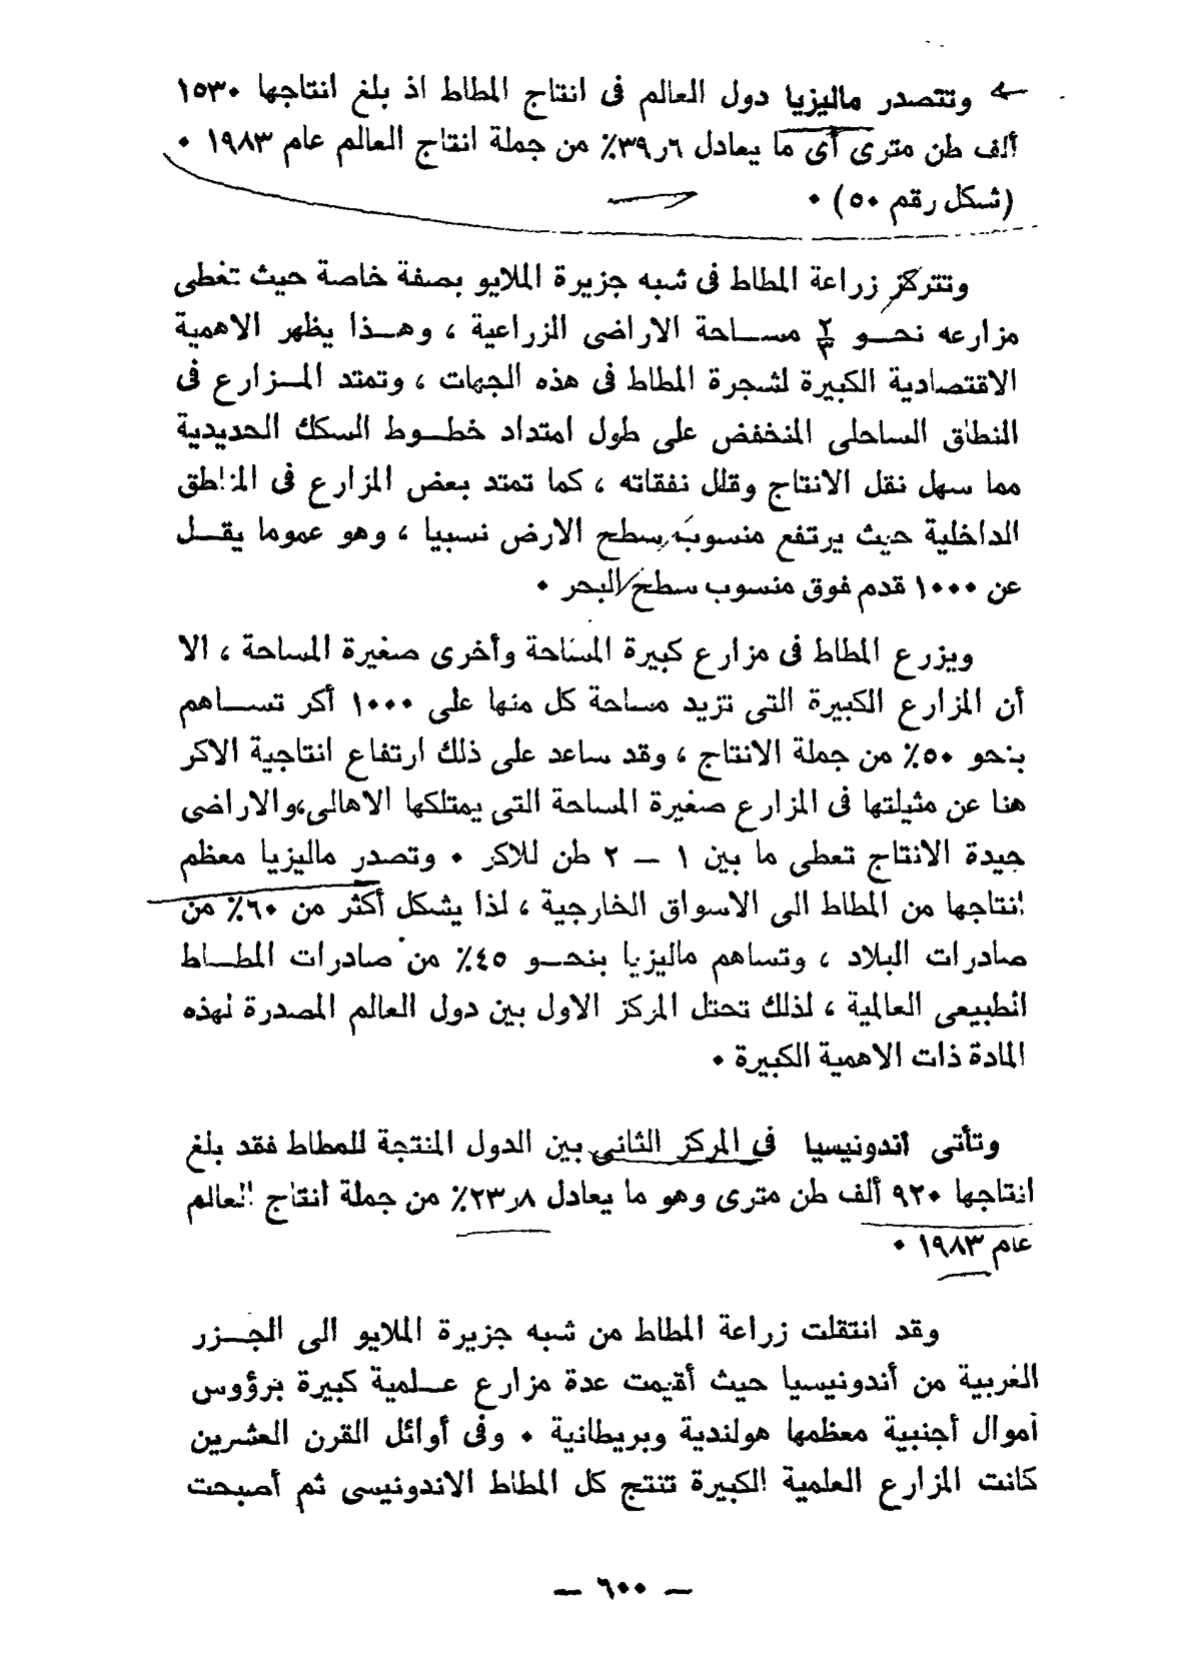 وتتصدر ماليزيا دول العالم فى انتاج المطاط اذ بلغ انتاجها ١٥٣٠
ألف طن مترى أى ما يعادل ٣٩٫٦٪ من جملة انتاج العالم عام ١٩٨٣ •
(شكل رقم ٥٠) •
وتتركز زراعة المطاط فى شبه جزيرة الملايو بصفة خاصة حيث تغطى
مزارعه نحــو ٢/٣ مســاحة الاراضى الزراعية ، وهــذا يظهر الاهمية
الاقتصادية الكبيرة لشجرة المطاط فى هذه الجهات ، وتمتد المــزارع فى
النطاق الساحلى المنخفض على طول امتداد خطــوط السكك الحديدية
مما سهل نقل الانتاج وقلل نفقاته ، كما تمتد بعض المزارع فى المناطق
الداخلية حيث يرتفع منسوب سطح الارض نسبيا ، وهو عموما يقــل
عن ١٠٠٠ قدم فوق منسوب سطح البحر •
ويزرع المطاط فى مزارع كبيرة المساحة وأخرى صغيرة المساحة ، الا
أن المزارع الكبيرة التى تزيد مساحة كل منها على ١٠٠٠ أكر تســاهم
بنحو ٥٠٪ من جملة الانتاج ، وقد ساعد على ذلك ارتفاع انتاجية الاكر
هنا عن مثيلتها فى المزارع صغيرة المساحة التى يمتلكها الاهالى،والاراضى
جيدة الانتاج تعطى ما بين ١ — ٢ طن للاكر • وتصدر ماليزيا معظم
انتاجها من المطاط الى الاسواق الخارجية ، لذا يشكل أكثر من ٦٠٪ من
صادرات البلاد ، وتساهم ماليزيا بنحــو ٤٥٪ من صادرات المطــاط
الطبيعى العالمية ، لذلك تحتل المركز الاول بين دول العالم المصدرة لهذه
المادة ذات الاهمية الكبيرة •
وتأتى اندونيسيا فى المركز الثانى بين الدول المنتجة للمطاط فقد بلغ
انتاجها ٩٢٠ ألف طن مترى وهو ما يعادل ٢٣٫٨٪ من جملة انتاج العالم
عام ١٩٨٣ •
وقد انتقلت زراعة المطاط من شبه جزيرة الملايو الى الجــزر
الغربية من أندونيسيا حيث أقيمت عدة مزارع عــلمية كبيرة برؤوس
أموال أجنبية معظمها هولندية وبريطانية • وفى أوائل القرن العشرين
كانت المزارع العلمية الكبيرة تنتج كل المطاط الاندونيسى ثم أصبحت
— ٦٠٠ —